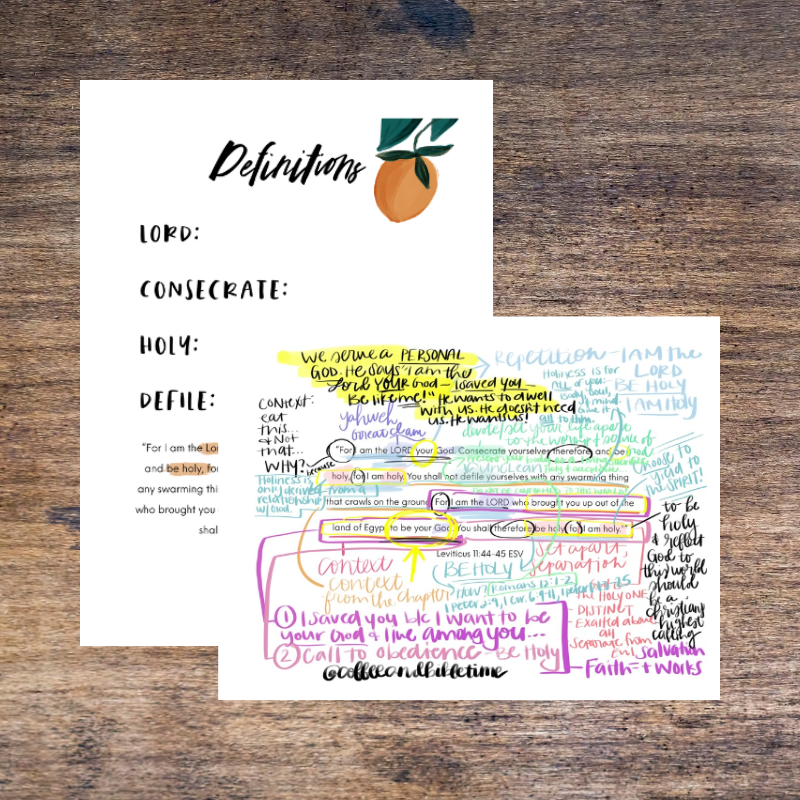 Definitions
LORD:
CONSECRATE:
HOLY:
DEFILE:
"For I am the Lo
and be holy, fo
any swarming thi
who brought you
shal
we serve a PERSONAL
GOD. He says "I am the
Lord YOUR God – I saved you
Be like me!" He wants to dwell
with us. He doesn't need
us. He wants us!
Repetition - I AM the
LORD
BE HOLY
I AM HOLY
Holiness is for
ALL of you:
Body, soul,
mind
context:
eat
this...
& Not
that...
WHY?
because
yahweh
Great I am
devote/set your life apart
to the worship & service of
"For I am the LORD your God. Consecrate yourselves therefore and be
holy, for I am holy. You shall not defile yourselves with any swarming thing
unclean
that crawls on the ground. For I am the LORD who brought you up out of the
land of Egypt to be your God. You shall therefore be holy, for I am holy."
Leviticus 11:44-45 ESV
Holiness is
only derived from a
relationship
w/ God.
choose to
to be
holy
& reflect
God to
this world
should
be a
christians
highest
calling
context
context
from the chapter
BE HOLY
set apart
separation
How? Romans 12:1-2
1 Peter 2:9, 1 Cor. 6:9-11,
THE HOLY ONE
DISTINCT
Exalted above
all
separate from
evil
① I saved you b/c I want to be
your God & live among you...
② Call to obedience - Be Holy
salvation
Faith = + works
@coffeeandbibletime